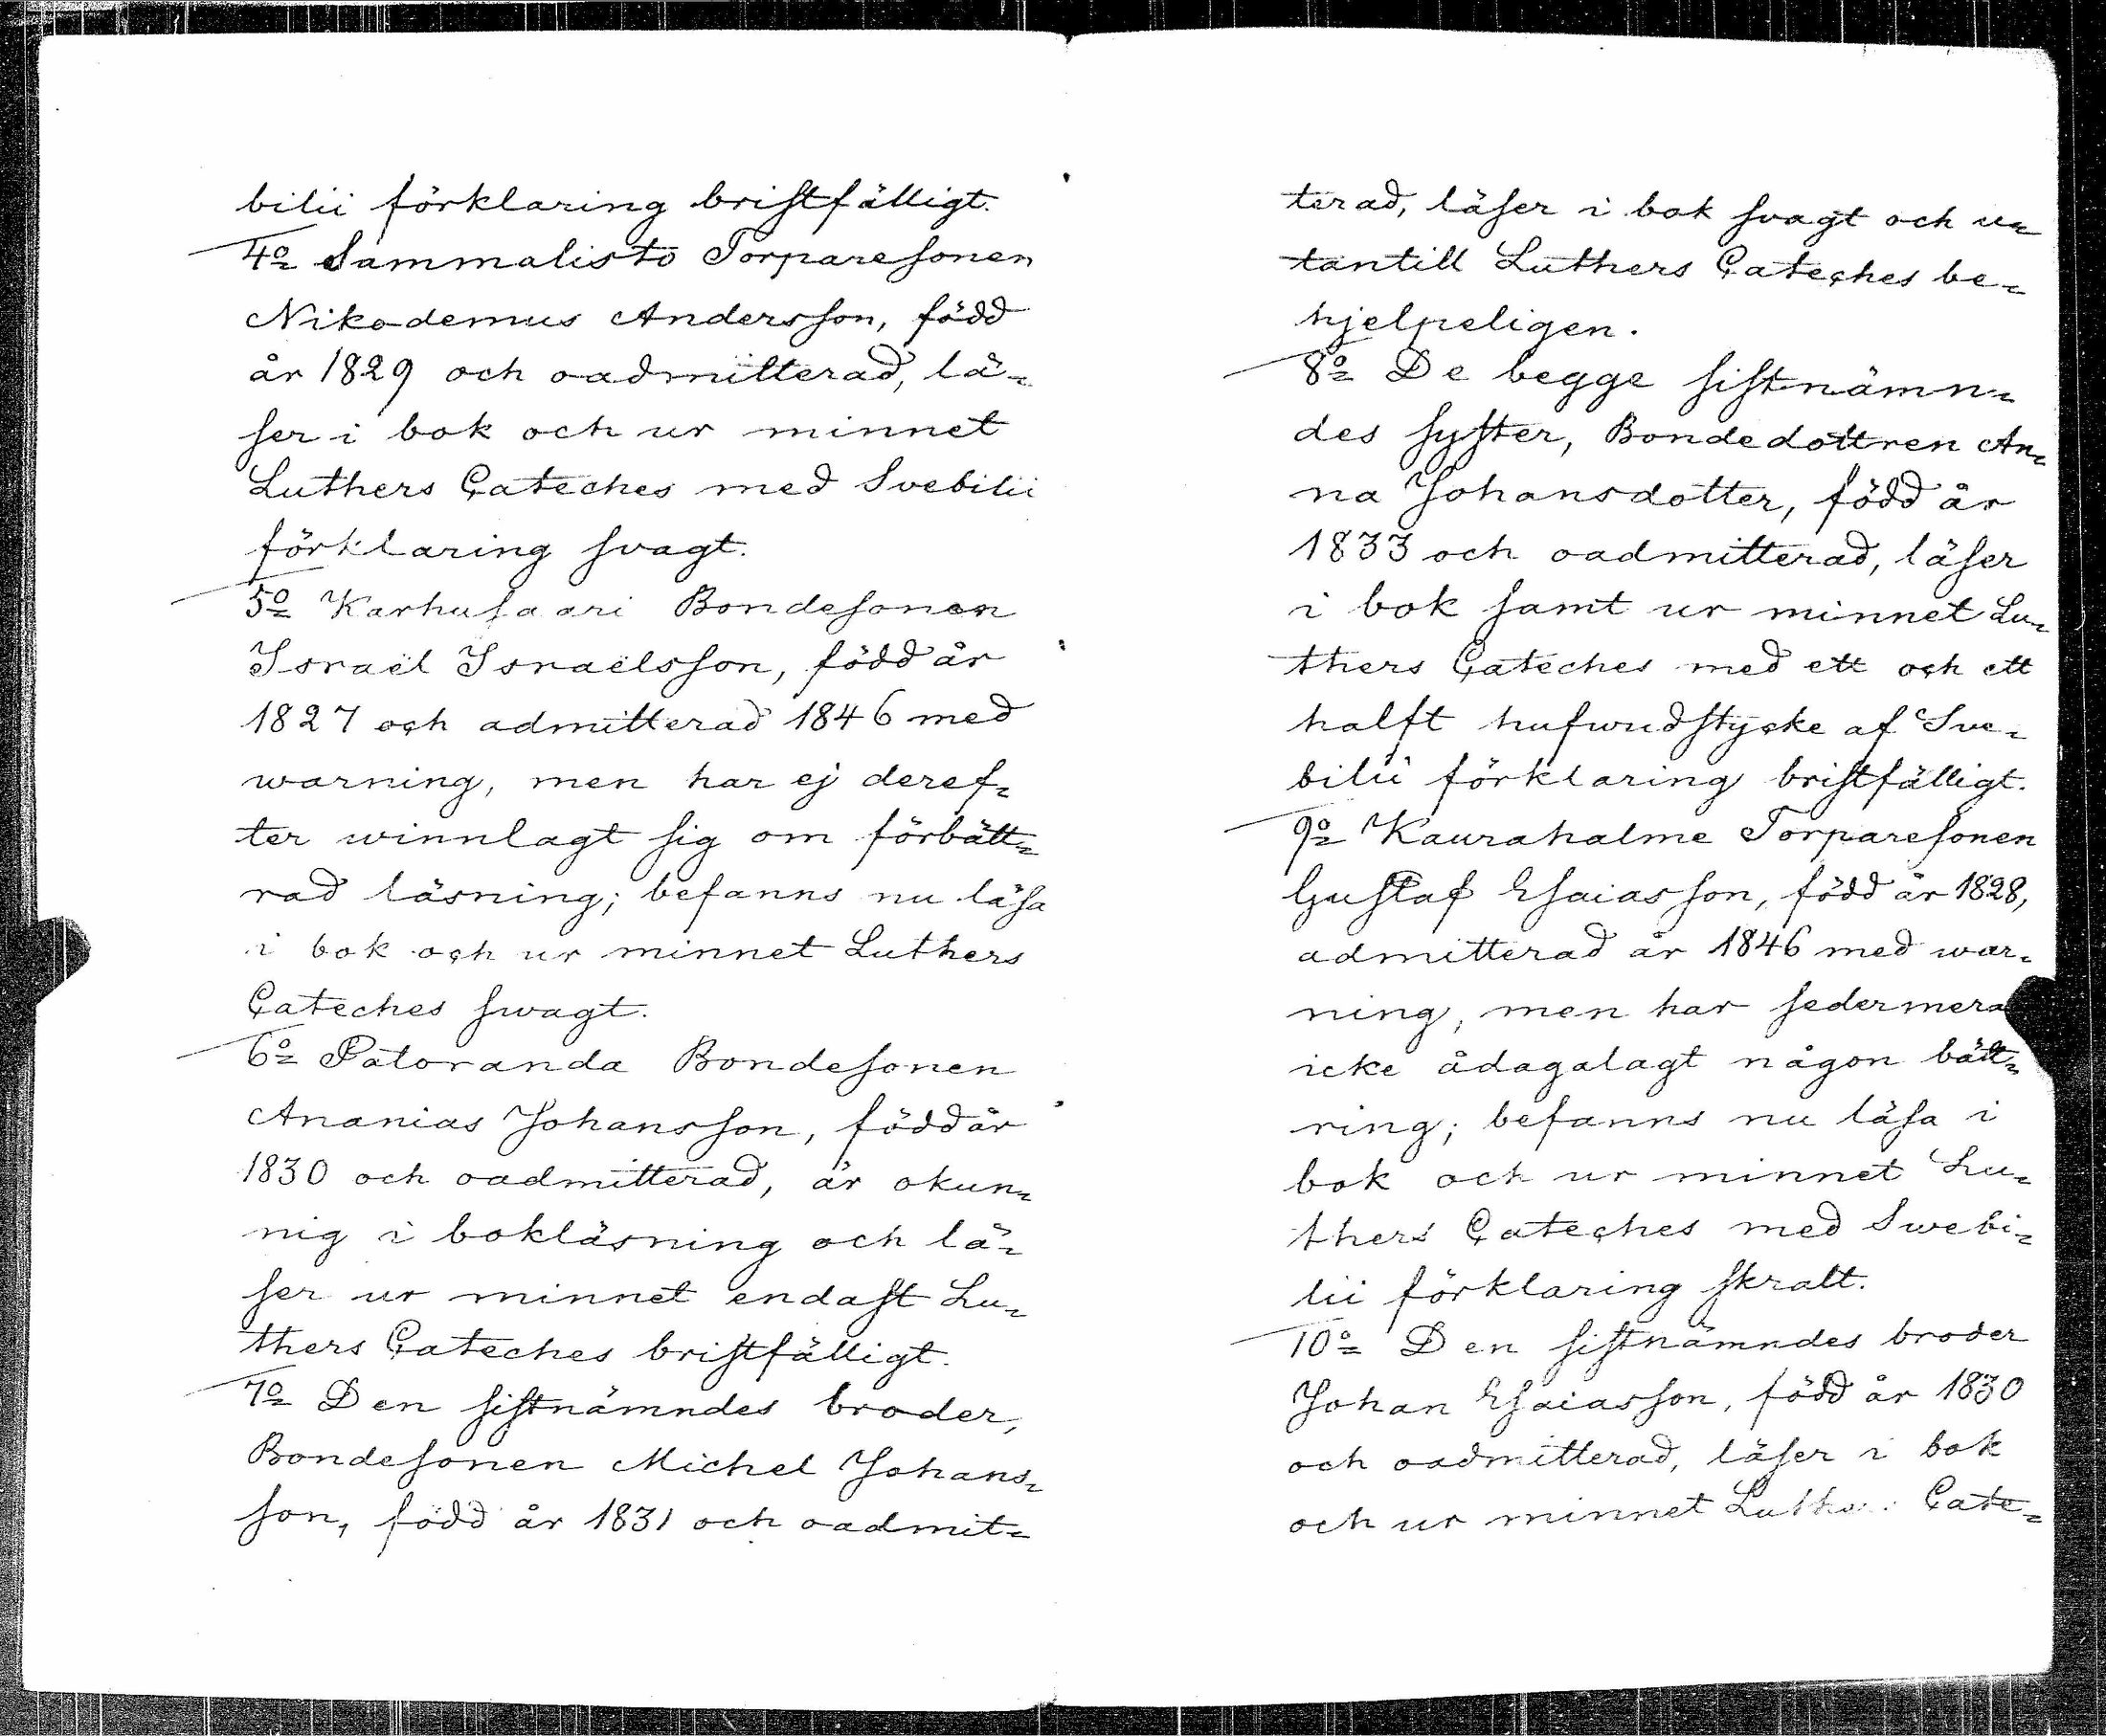 bilii förklaring bristfälligt.
4o Sammalisto Torparesonen
Nikodemus Andersson, född
år 1829 och oadmitterad, lä=
ser i bok och ur minnet
Luthers Cateches med Svebilii
förklaring svagt.
5o Karhusaari Bondesonen
Israël Israëlsson, född år
1827 och admitterad 1846 med
warning, men har ej deref=
ter winnlagt sig om förbätt=
rad läsning; befanns nu läsa
i bok och ur minnet Luthers
Cateches swagt.
6o Patoranda Bondesonen
Ananias Johansson, född år
1830 och oadmitterad, är okun=
nig i bokläsning och lä=
ser ur minnet endast Lu=
thers Cateches bristfälligt.
7o Den sistnämndes broder,
Bondesonen Michel Johans=
son, född år 1831 och oadmit=
terad, läser i bok svagt och u=
tantill Luthers Cateches be=
hjelpeligen.
8o De begge sistnämn=
des syster, Bondedottren An=
na Johansdotter, född år
1833 och oadmitterad, läser
i bok samt ur minnet Lu=
thers Cateches med ett och ett
halft hufwudstycke af Sve=
bilii förklaring bristfälligt.
9o Kaurahalme Torparesonen
Gustaf Esaiasson, född år 1828,
admitterad år 1846 med war=
ning, men har sedermera
icke ådagalagt någon bätt=
ring; befanns nu läsa i
bok och ur minnet Lu=
thers Cateches med Swebi=
lii förklaring skralt.
10o Den sistnämndes broder
Johan Esaiasson, född år 1830
och oadmitterad, läser i bok
och ur minnet Luthers Cate=